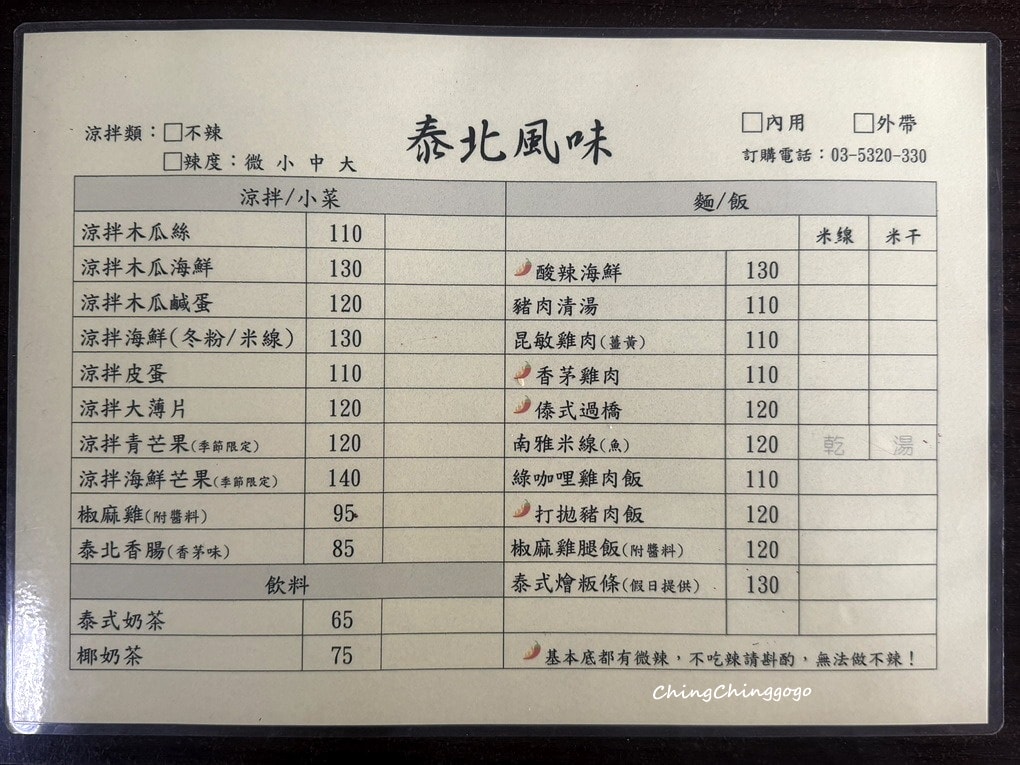 涼拌類：□不辣
□辣度：微 小 中 大
泰北風味
□內用 □外帶
訂購電話：03-5320-330
涼拌/小菜
涼拌木瓜絲 110
涼拌木瓜海鮮 130
涼拌木瓜鹹蛋 120
涼拌海鮮(冬粉/米線) 130
涼拌皮蛋 110
涼拌大薄片 120
涼拌青芒果(季節限定) 120
涼拌海鮮芒果(季節限定) 140
椒麻雞(附醬料) 95
泰北香腸(香茅味) 85
飲料
泰式奶茶 65
椰奶茶 75
麵/飯
米線 米干
酸辣海鮮 130
豬肉清湯 110
昆敏雞肉(薑黃) 110
香茅雞肉 110
傣式過橋 120
南雅米線(魚) 120 乾 湯
綠咖哩雞肉飯 110
打拋豬肉飯 120
椒麻雞腿飯(附醬料) 120
泰式燴粄條(假日提供) 130
基本底都有微辣，不吃辣請斟酌，無法做不辣！
ChingChinggogo